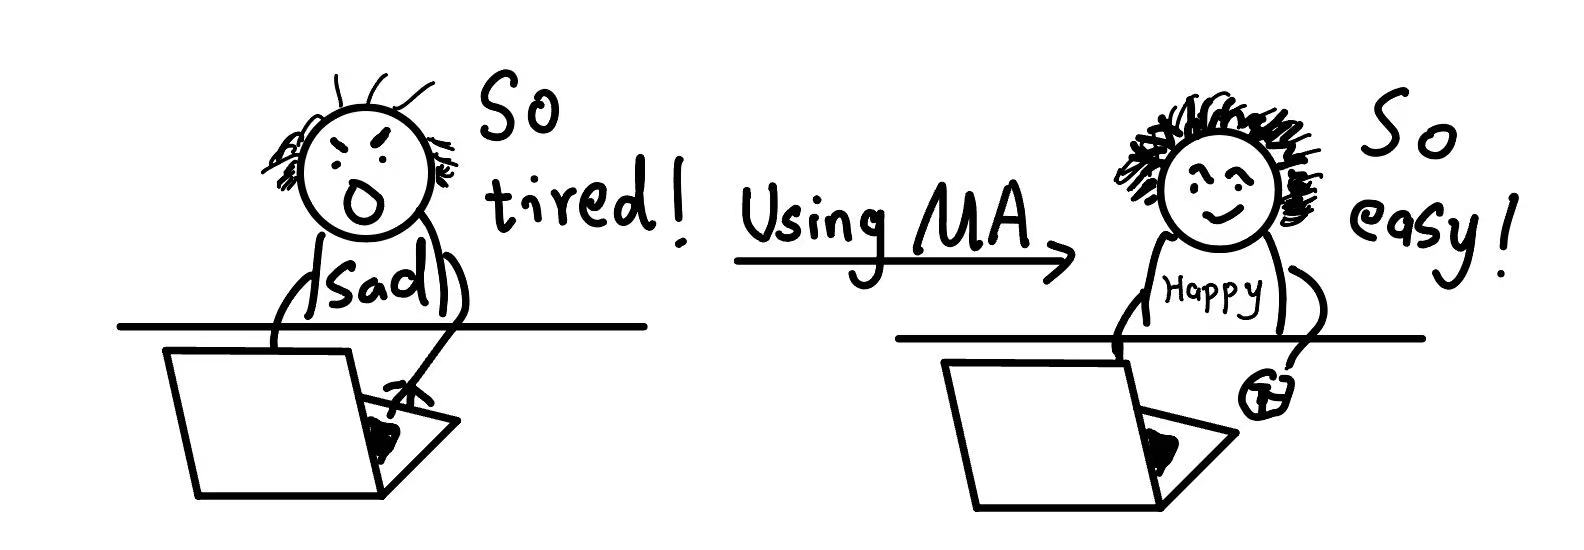 So
tired!
Sad
Using MA
So
easy!
Happy